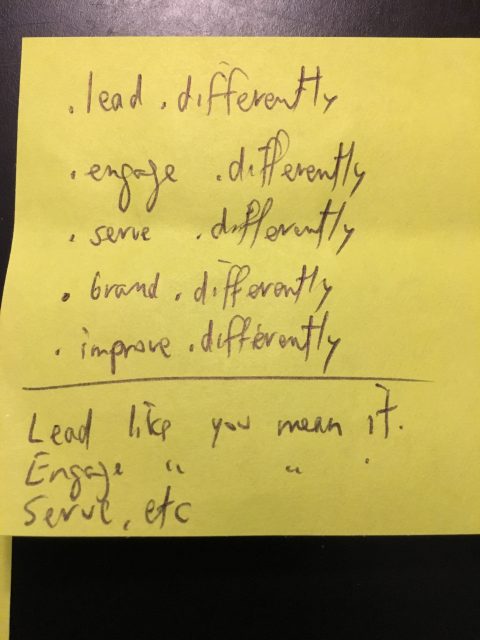 . lead . differently
. engage . differently
. serve . differently
. brand . differently
. improve . differently
Lead like you mean it.
Engage " " .
Serve, etc